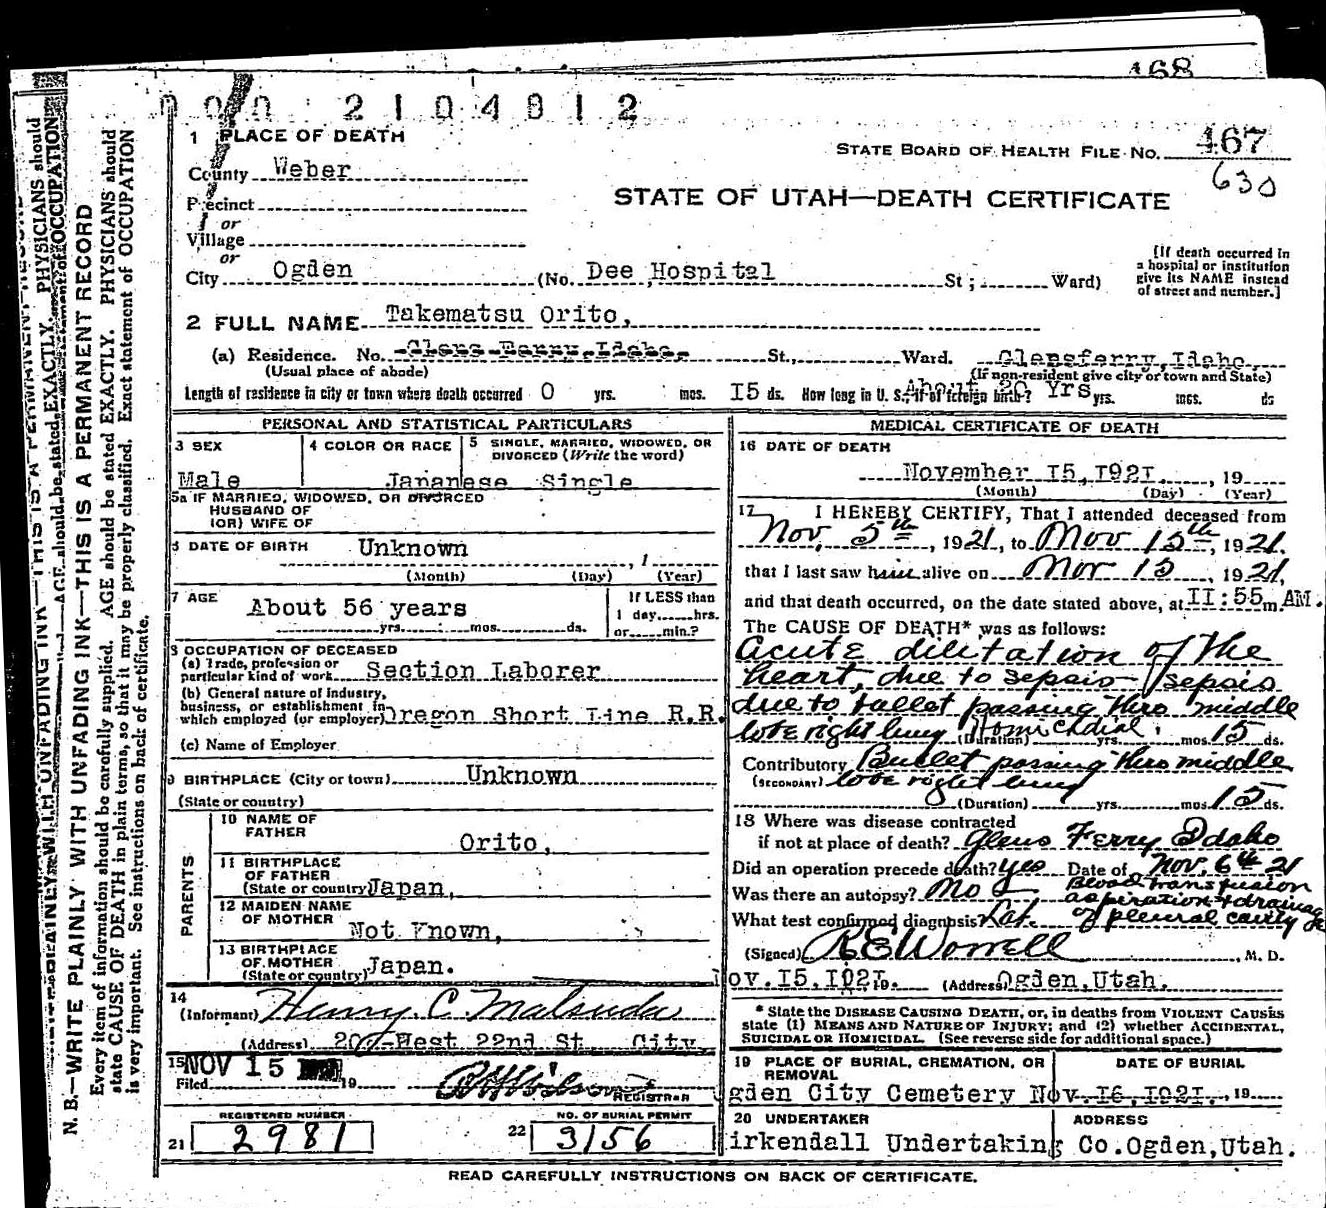 168
000 2104812
1 PLACE OF DEATH
STATE BOARD OF HEALTH FILE NO. 467
630
County Weber
STATE OF UTAH—DEATH CERTIFICATE
Precinct
or
Village
or
City Ogden (No. Dee Hospital St ; Ward)
[If death occurred in
a hospital or institution
give its NAME instead
of street and number.]
2 FULL NAME Takematsu Orito,
(a) Residence. No. Glens Ferry, Idaho. St., Ward. Glensferry, Idaho
(Usual place of abode) (If non-resident give city or town and State)
Length of residence in city or town where death occurred 0 yrs. mos. I5 ds. How long in U. S., if of foreign birth? About 20 Yrs yrs. mos. ds
PERSONAL AND STATISTICAL PARTICULARS
3 SEX
Male
4 COLOR OR RACE
Japanese
5 SINGLE, MARRIED, WIDOWED, OR
DIVORCED (Write the word)
Single
5a IF MARRIED, WIDOWED, OR DIVORCED
HUSBAND OF
(OR) WIFE OF
6 DATE OF BIRTH Unknown , 1
(Month) (Day) (Year)
7 AGE About 56 years
yrs. mos. ds.
If LESS than
1 day hrs.
or min.?
8 OCCUPATION OF DECEASED
(a) Trade, profession or
particular kind of work Section Laborer
(b) General nature of industry,
business, or establishment in
which employed (or employer) Oregon Short Line R.R.
(c) Name of Employer
9 BIRTHPLACE (City or town) Unknown
(State or country)
PARENTS
10 NAME OF
FATHER Orito,
11 BIRTHPLACE
OF FATHER
(State or country) Japan,
12 MAIDEN NAME
OF MOTHER Not Known,
13 BIRTHPLACE
OF MOTHER
(State or country) Japan.
14
(Informant) Henry C Matsuda
(Address) 207 West 22nd St City
15 NOV 15
Filed 19
REGISTRAR
REGISTERED NUMBER
21 2981
NO. OF BURIAL PERMIT
22 3156
MEDICAL CERTIFICATE OF DEATH
16 DATE OF DEATH
November I5, I92I, 19
(Month) (Day) (Year)
17 I HEREBY CERTIFY, That I attended deceased from
Nov, 5th, 1921, to Nov 15th, 1921.
that I last saw him alive on Nov 15, 1921,
and that death occurred, on the date stated above, at II:55m AM.
The CAUSE OF DEATH* was as follows:
Acute dilitation of the
heart, due to sepsis - sepsis
due to bullet passing thro middle
lobe right lung Homicidial.
(Duration) yrs. mos. 15 ds.
Contributory Bullet passing thro middle
(SECONDARY) lobe right lung
(Duration) yrs. mos. 15 ds.
18 Where was disease contracted
if not at place of death? Glens Ferry Idaho
Did an operation precede death? Yes Date of Nov. 6th 21
Was there an autopsy? No Blood transfusion
aspiration & drainage
What test confirmed diagnosis? Lab. of pleural cavity
(Signed) R E Worrell, M. D.
Nov. I5, I92I, 19. (Address) Ogden, Utah.
* State the DISEASE CAUSING DEATH, or, in deaths from VIOLENT CAUSES
state (1) MEANS AND NATURE OF INJURY; and (2) whether ACCIDENTAL,
SUICIDAL OR HOMICIDAL. (See reverse side for additional space.)
19 PLACE OF BURIAL, CREMATION, OR
REMOVAL
DATE OF BURIAL
gden City Cemetery Nov. I6, I92I., 19
20 UNDERTAKER
ADDRESS
irkendall Undertaking Co. Ogden, Utah.
READ CAREFULLY INSTRUCTIONS ON BACK OF CERTIFICATE.
N. B.—WRITE PLAINLY WITH UNFADING INK—THIS IS A PERMANENT RECORD
Every item of information should be carefully supplied. AGE should be stated EXACTLY. PHYSICIANS should
state CAUSE OF DEATH in plain terms, so that it may be properly classified. Exact statement of OCCUPATION
is very important. See instructions on back of certificate.